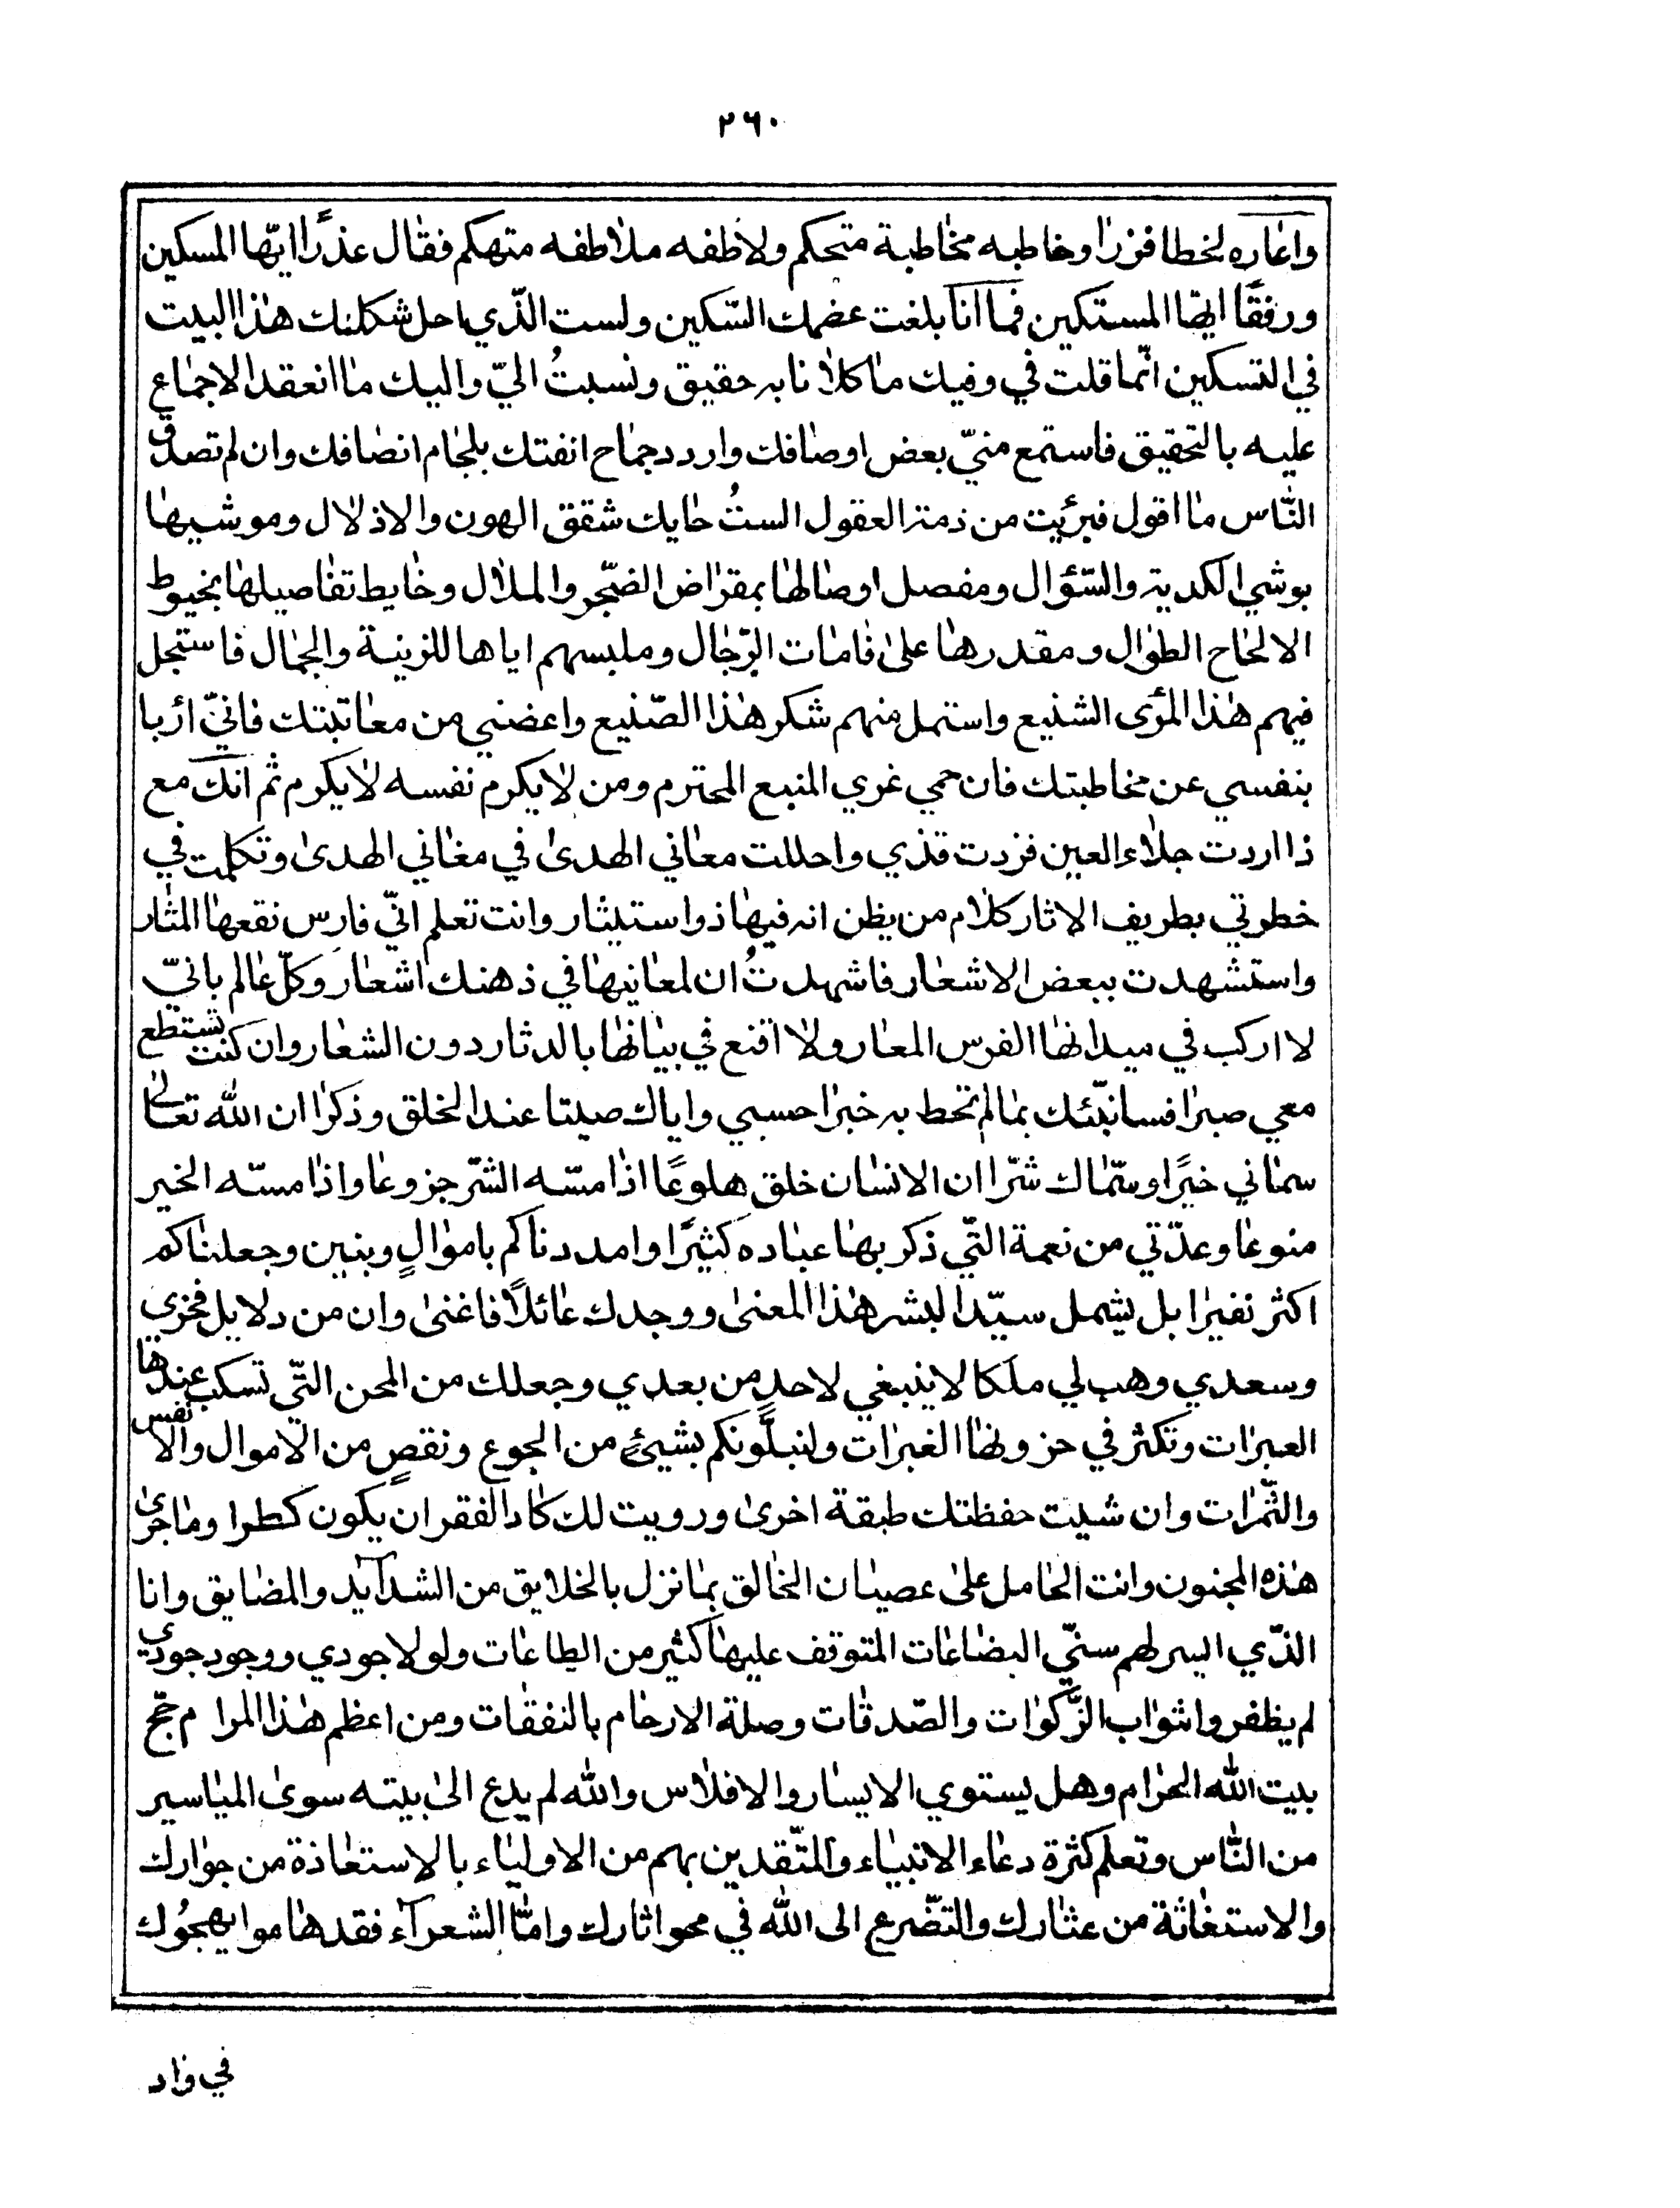 ٢٦٠
واعاره لخطا فزرا وخاطبه مخاطبة متحكم ولاطفه ملاطفه متهكم فقال عذرًا ايّها المسكين
ورفقًا ايها المستكين فما انا بلغت عضمك السّكين ولست الذّي احل شكلنك هذا البيت
في التسكين انّما قلت في وفيك ما كلانا به حقيق ونسبتُ اليّ واليك ما انعقد الاجماع
عليه بالتحقيق فاستمع منيّ بعض اوصافك واردد جماح انفتك بلجام انصافك وان لم تصدق
النّاس ما اقول فبرئيت من ذمة العقول الستُ حايك شقق الهون والاذلال وموشيها
بوشي الكدية والسّؤال ومفصل اوصالها بمقراض الضّجر والملال وخايط تفاصيلها بخيوط
الالحاح الطوال ومقدرها على قامات الرّجال وملبسهم اياها للزينة والجمال فاستجل
فيهم هذا المرئى الشنيع واستمل منهم شكر هذا الصّنيع واعضني من معاتبتك فانيّ اربا
بنفسي عن مخاطبتك فان حمي غري المنبع المحترم ومن لا يكرم نفسه لا يكرم ثم انك مع
ذا اردت جلاء العين فزدت قذي واحللت معاني الهدى في مغاني الهدى وتكلمت في
خطرتي بطريف الاثار كلام من يظن انه فيها ذو استيثار وانت تعلم انيّ فارس نقعها المثار
واستشهدت ببعض الاشعار فاشهدتُ ان لمعانيها في ذهنك اشعار وكلّ عالم بانيّ
لا اركب في ميدانها الفرس المعار ولا اقنع في بيانها بالدثار دون الشعار وان كنت تستطع
معي صبرا فسانبّئك بما لم تحط به خبرا حسبي واياك صيتا عند الخلق وذكرا ان الله تعالى
سماني خيرًا وسمّاك شرّا ان الانسان خلق هلوعًا اذا مسّه الشرّ جزوعا واذا مسّه الخير
منوعا وعدّني من نعمة التّي ذكر بها عباده كثيرًا وامددناكم باموالٍ وبنين وجعلناكم
اكثر نفيرا بل يشمل سيّد البشر هذا المعنى ووجدك عائلًا فاغنى وان من دلايل فخري
وسعدي وهب لي ملكا لا ينبغي لاحدٍ من بعدي وجعلك من المحن التّي تسكب عندها
العبرات وتكثر في حزونها الغبرات ولنبلّونكم بشيئٍ من الجوع ونقصٍ من الاموال والانفس
والثّمرات وان شيت حفظتك طبقة اخرى ورويت لك كاد الفقر ان يكون كطرا وما جرى
هذه المجنون وانت الحامل على عصيان الخالق بما نزل بالخلايق من الشدآيد والمضايق وانا
الذّي ايسر لهم سنيّ البضاعات المتوقف عليها كثير من الطاعات ولولا جودي ووجود جودي
لم يظفروا بثواب الزّكوات والصّدقات وصلة الارحام بالنفقات ومن اعظم هذا المرام حجّ
بيت الله الحرام وهل يستوي الايسار والافلاس والله لم يدع الى بيته سوى المياسير
من النّاس وتعلم كثرة دعاء الانبياء والمتّقدين بهم من الاولياء بالاستعاذة من جوارك
والاستغاثة من عثارك والتضّرع الى الله في محو اثارك وامّا الشعرآء فقد هاموا بهجُوك
في واد